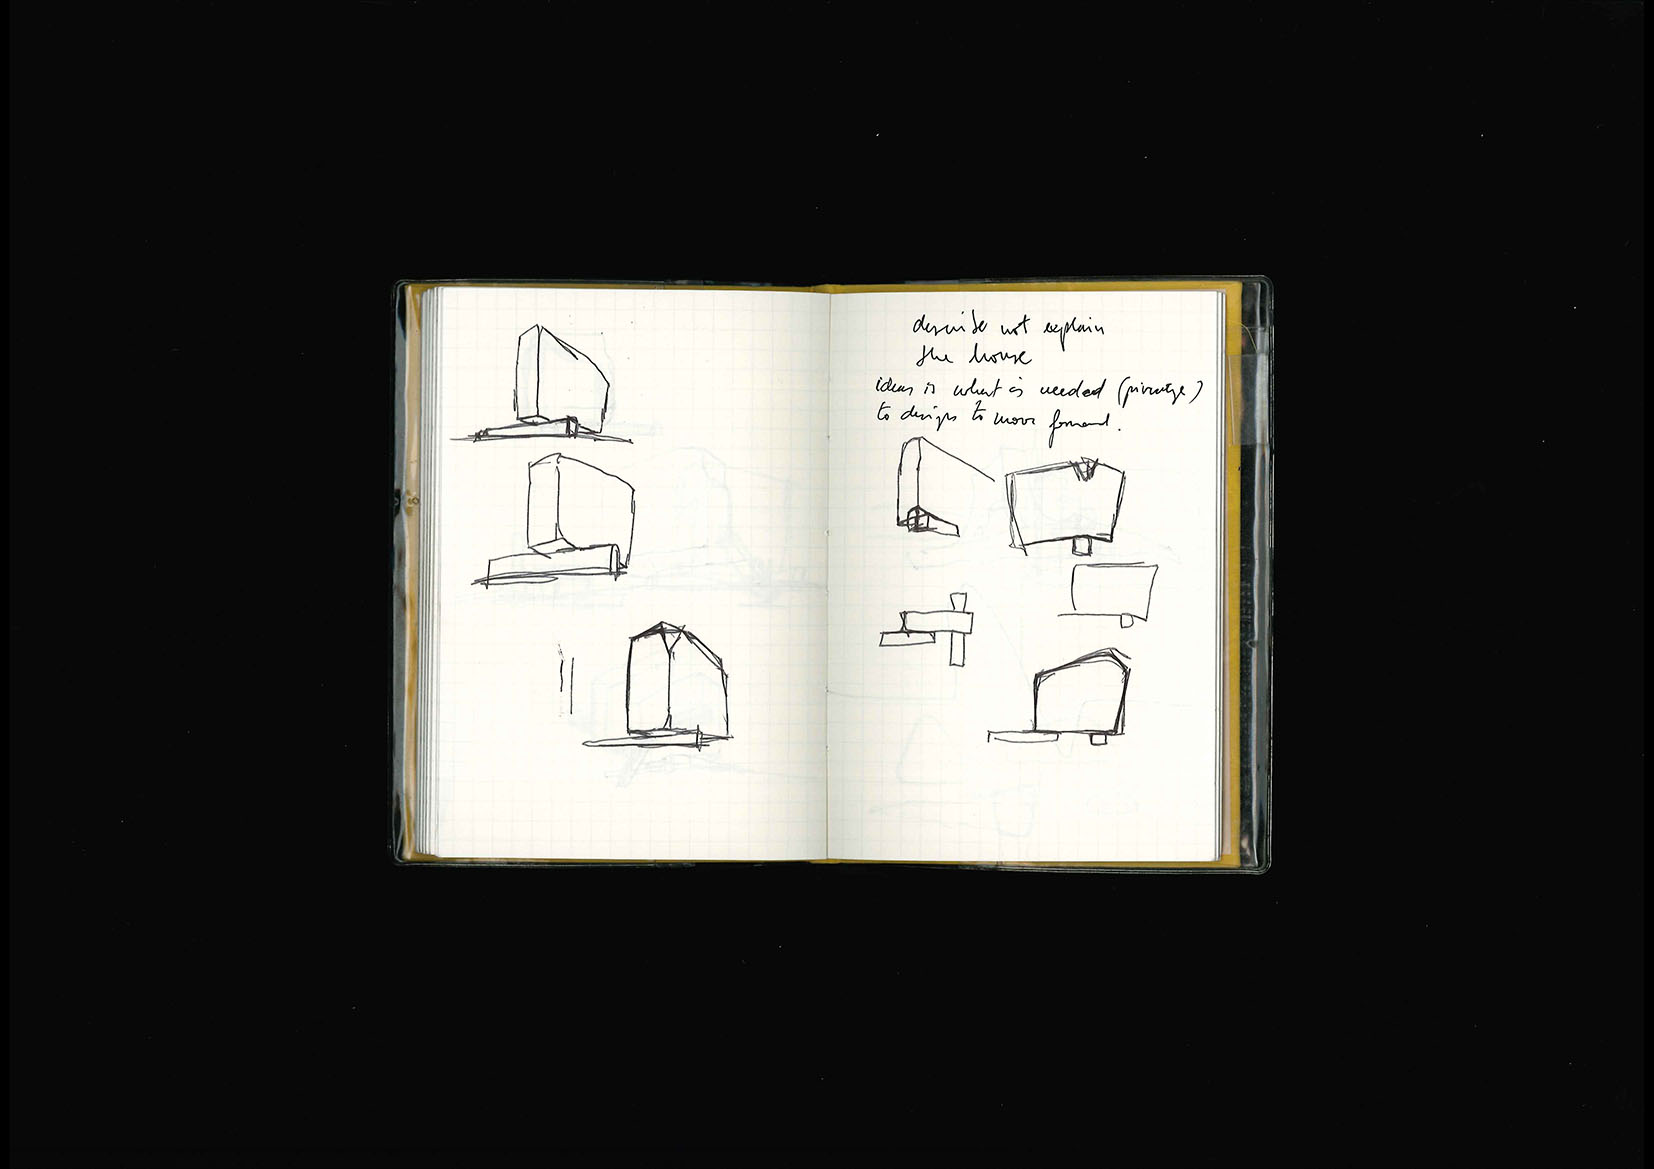 describe not explain
the house
ideas is what is needed
to design to move forward.